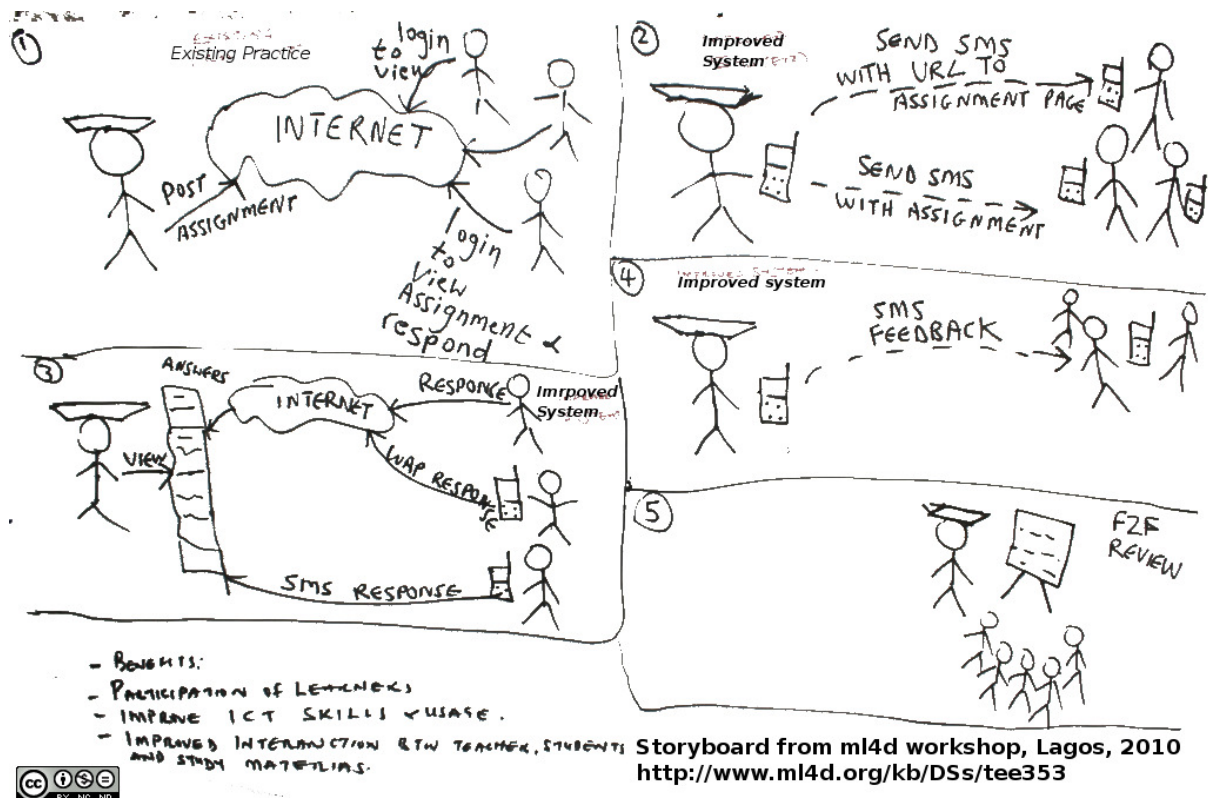 1
EXISTING
Existing Practice
login
to
view
INTERNET
POST
ASSIGNMENT
login
to
View
Assignment &
respond
2
Improved
System
SEND SMS
WITH URL TO
ASSIGNMENT PAGE
SEND SMS
WITH ASSIGNMENT
3
ANSWERS
INTERNET
RESPONSE
Imrpoved
System
VIEW
WAP RESPONSE
SE
SMS RESPONSE
4
IMPROVED SYSTEM
Improved system
SMS
FEEDBACK
5
F2F
REVIEW
- BENEFITS:
- PARTICIPATION OF LEARNERS
- IMPROVE ICT SKILLS & USAGE.
- IMPROVED INTERANCTION BTW TEACHER, STUDENTS
AND STUDY MATETLIAS.
Storyboard from ml4d workshop, Lagos, 2010
http://www.ml4d.org/kb/DSs/tee353
cc
BY NC ND